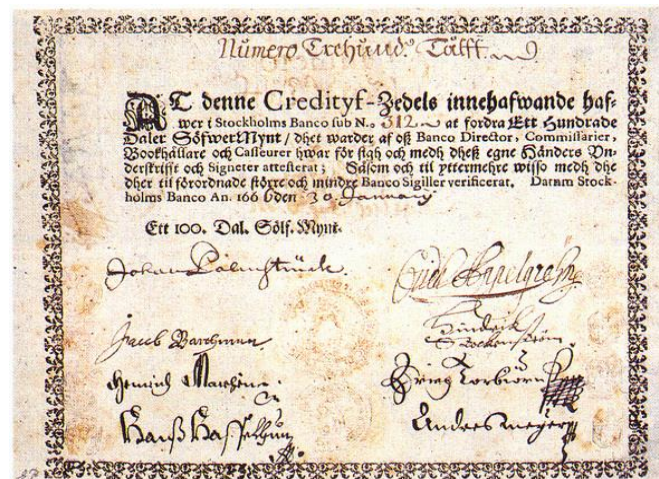 Numero Trehund. Tålff
AT denne Credityf-Zedels innehafwande haf-
wer i Stockholms Banco sub N.o 312. at fordra Ett Hundrade
Daler SölfwerMynt / dhet warder af oß Banco Director, Commissarier,
Bookhållare och Casseurer hwar för sigh och medh dheß egne Händers Vn-
derskrifft och Signeter attesterat; Såsom och til yttermehre wisso medh dhe
dher til förordnade större och mindre Banco Sigiller verificerat. Datum Stock-
holms Banco An. 1666 den 30. January
Ett 100. Dal. Sölf. Mynt.
Johan Palmstruck
Jacob Barchman
Hinrick
Heinrich
Anders Meyer